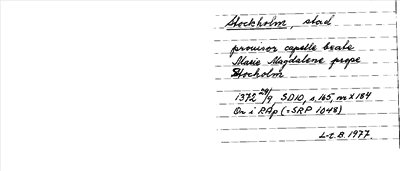 Stockholm, stad
provisor capelle beate
Marie Magdalene prope
Stocholm
1372 29/9 SD10, s. 165, nr X 184
Or i RAp (=SRP 1048)
L-t. B. 1977.